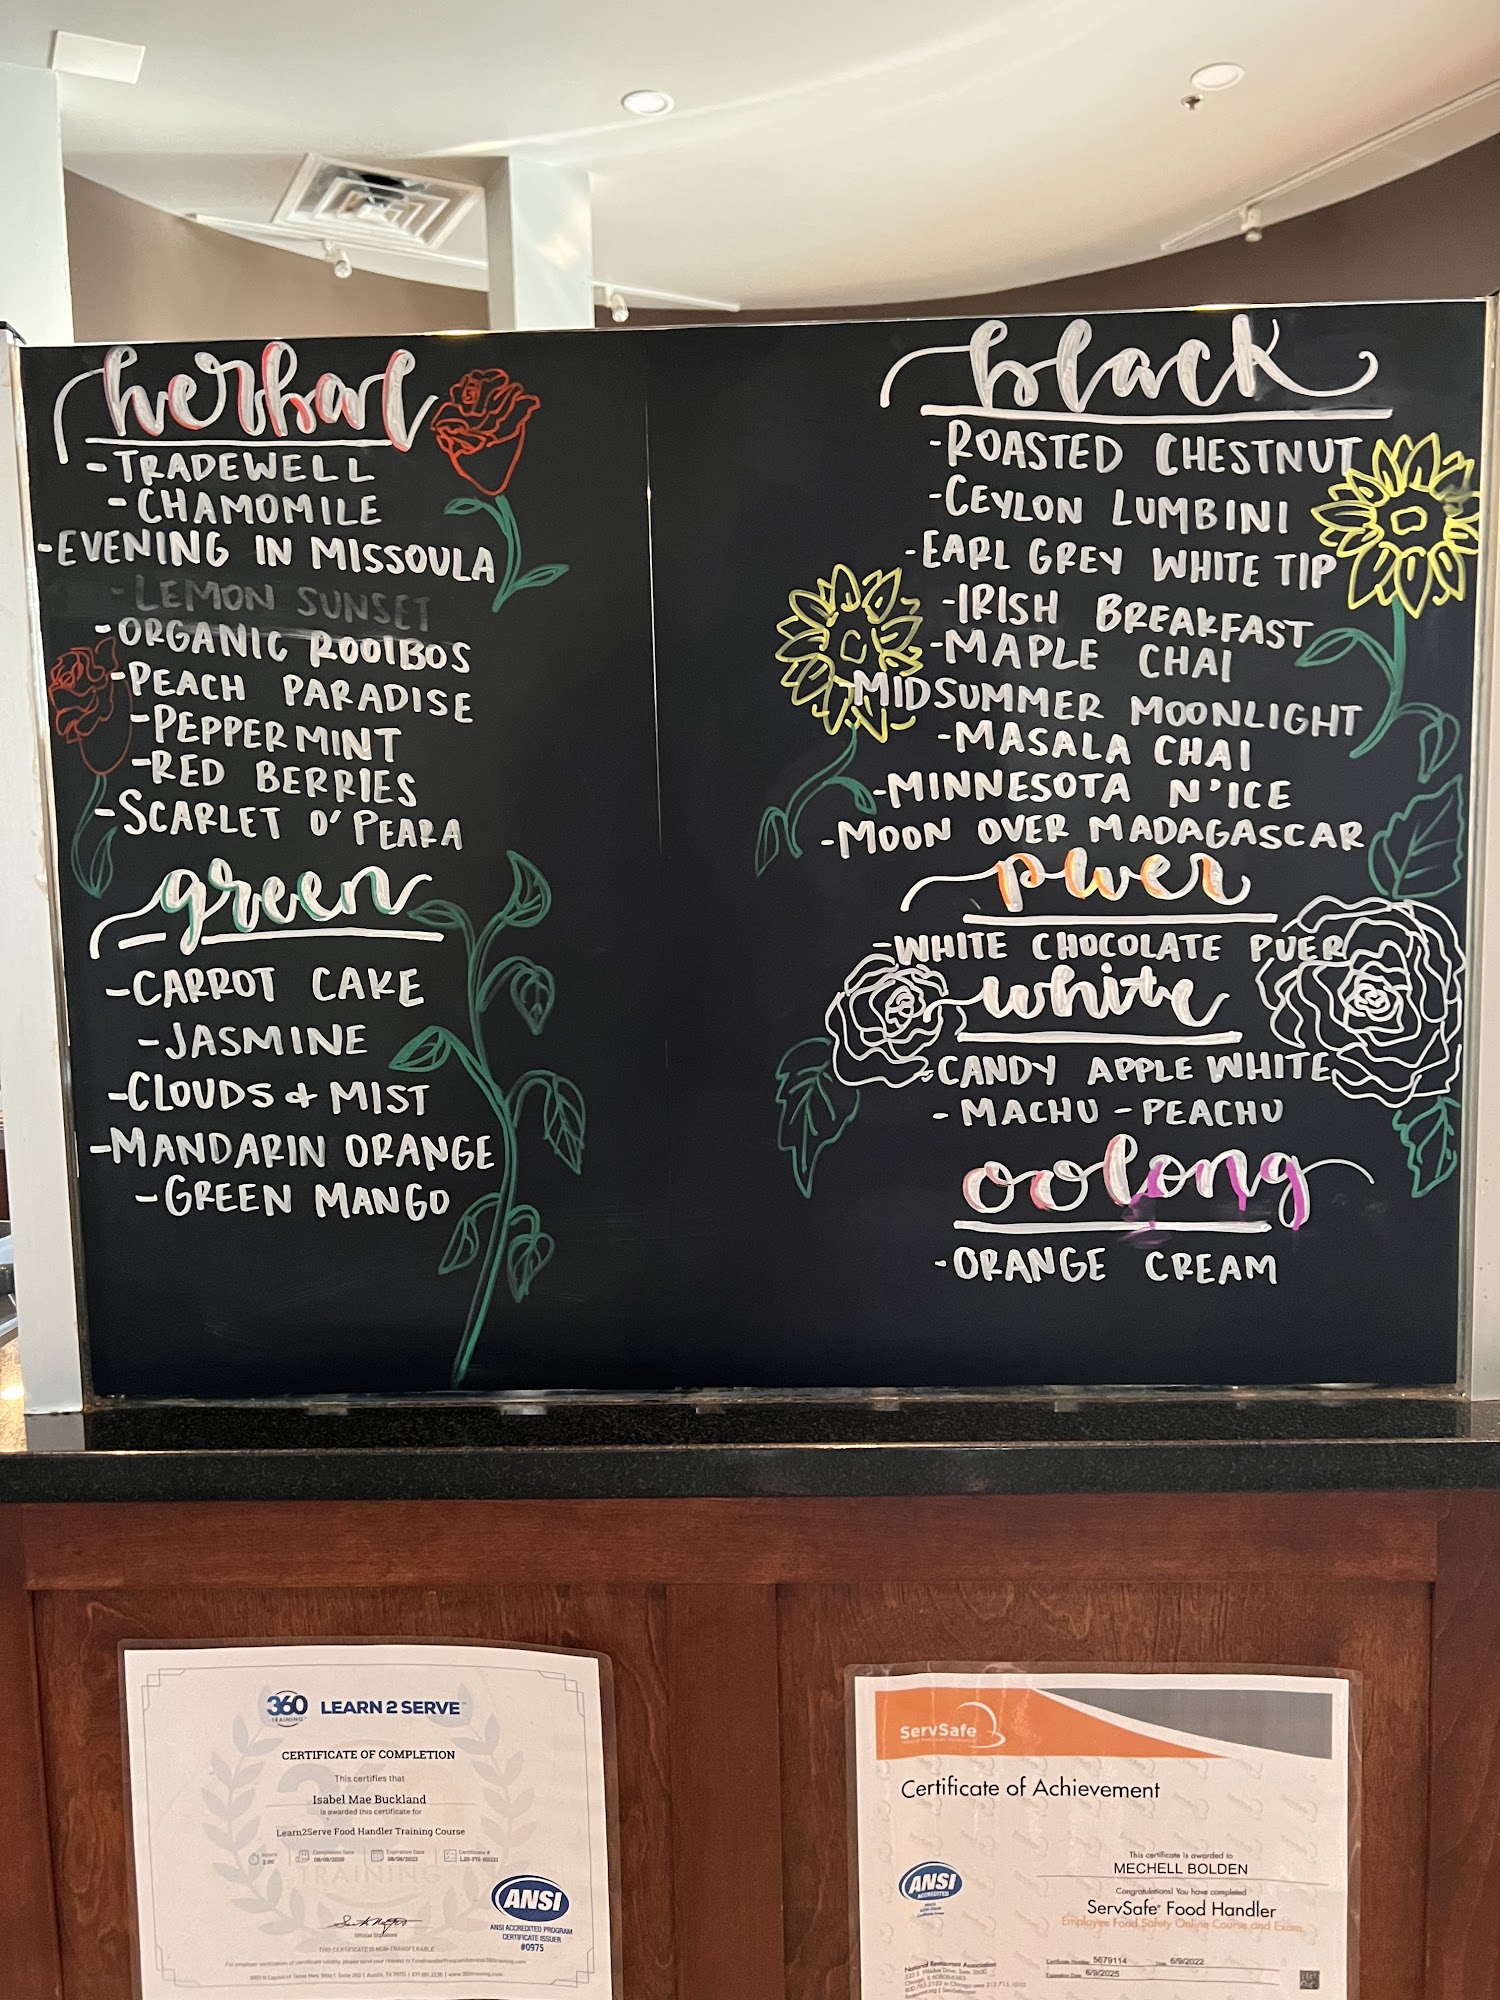 herbal
-TRADEWELL
-CHAMOMILE
-EVENING IN MISSOULA
-LEMON SUNSET
-ORGANIC ROOIBOS
-PEACH PARADISE
-PEPPERMINT
-RED BERRIES
-SCARLET O'PEARA
green
-CARROT CAKE
-JASMINE
-CLOUDS & MIST
-MANDARIN ORANGE
-GREEN MANGO
black
-ROASTED CHESTNUT
-CEYLON LUMBINI
-EARL GREY WHITE TIP
-IRISH BREAKFAST
-MAPLE CHAI
MIDSUMMER MOONLIGHT
-MASALA CHAI
-MINNESOTA N'ICE
-MOON OVER MADAGASCAR
puer
-WHITE CHOCOLATE PUER
white
-CANDY APPLE WHITE
-MACHU-PEACHU
oolong
-ORANGE CREAM
360 TRAINING LEARN2SERVE
CERTIFICATE OF COMPLETION
This certifies that
Isabel Mae Buckland
is awarded this certificate for
Learn2Serve Food Handler Training Course
Hours
Completion Date
08/08/2020
Expiration Date
Certificate #
ANSI
ANSI ACCREDITED PROGRAM
CERTIFICATE ISSUER
#0975
Official Signature
THIS CERTIFICATE IS NON-TRANSFERABLE
ServSafe
Certificate of Achievement
This certificate is awarded to
MECHELL BOLDEN
Congratulations! You have completed
ServSafe® Food Handler
Employee Food Safety Online Course and Exam
ANSI
ACCREDITED
Certificate Number 5679114 Date 6/9/2022
Expiration Date 6/9/2025
National Restaurant Association